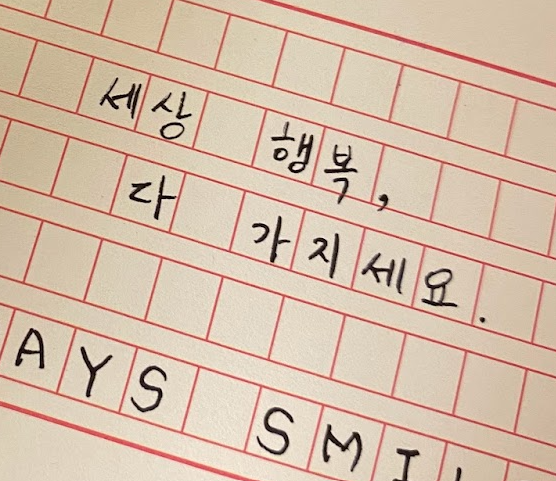 세상 행복,
다 가지세요.
AYS SMI